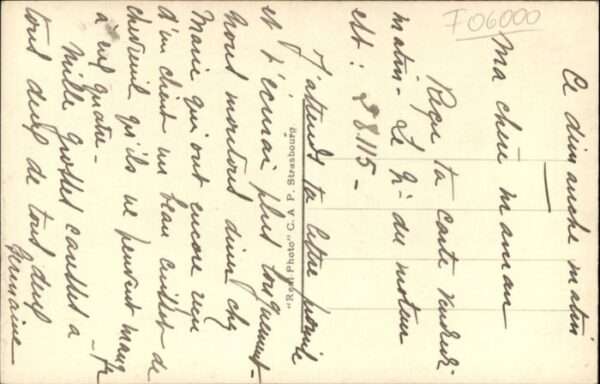 Ce dimanche matin
Ma chère maman
Reçu ta carte vendredi
matin - Le N° du moteur
est : 88115 -
J'attends ta lettre promise
et t'écrirai plus longuement -
Nous montons diner chez
Marie qui ont encore reçu
d'un client un beau cuissot de
chevreuil qu'ils ne peuvent manger
à eux quatre -
Mille grosses caresses à
tous deux de tous deux
Germaine
"Real Photo" C. A. P. Strasbourg
T06000